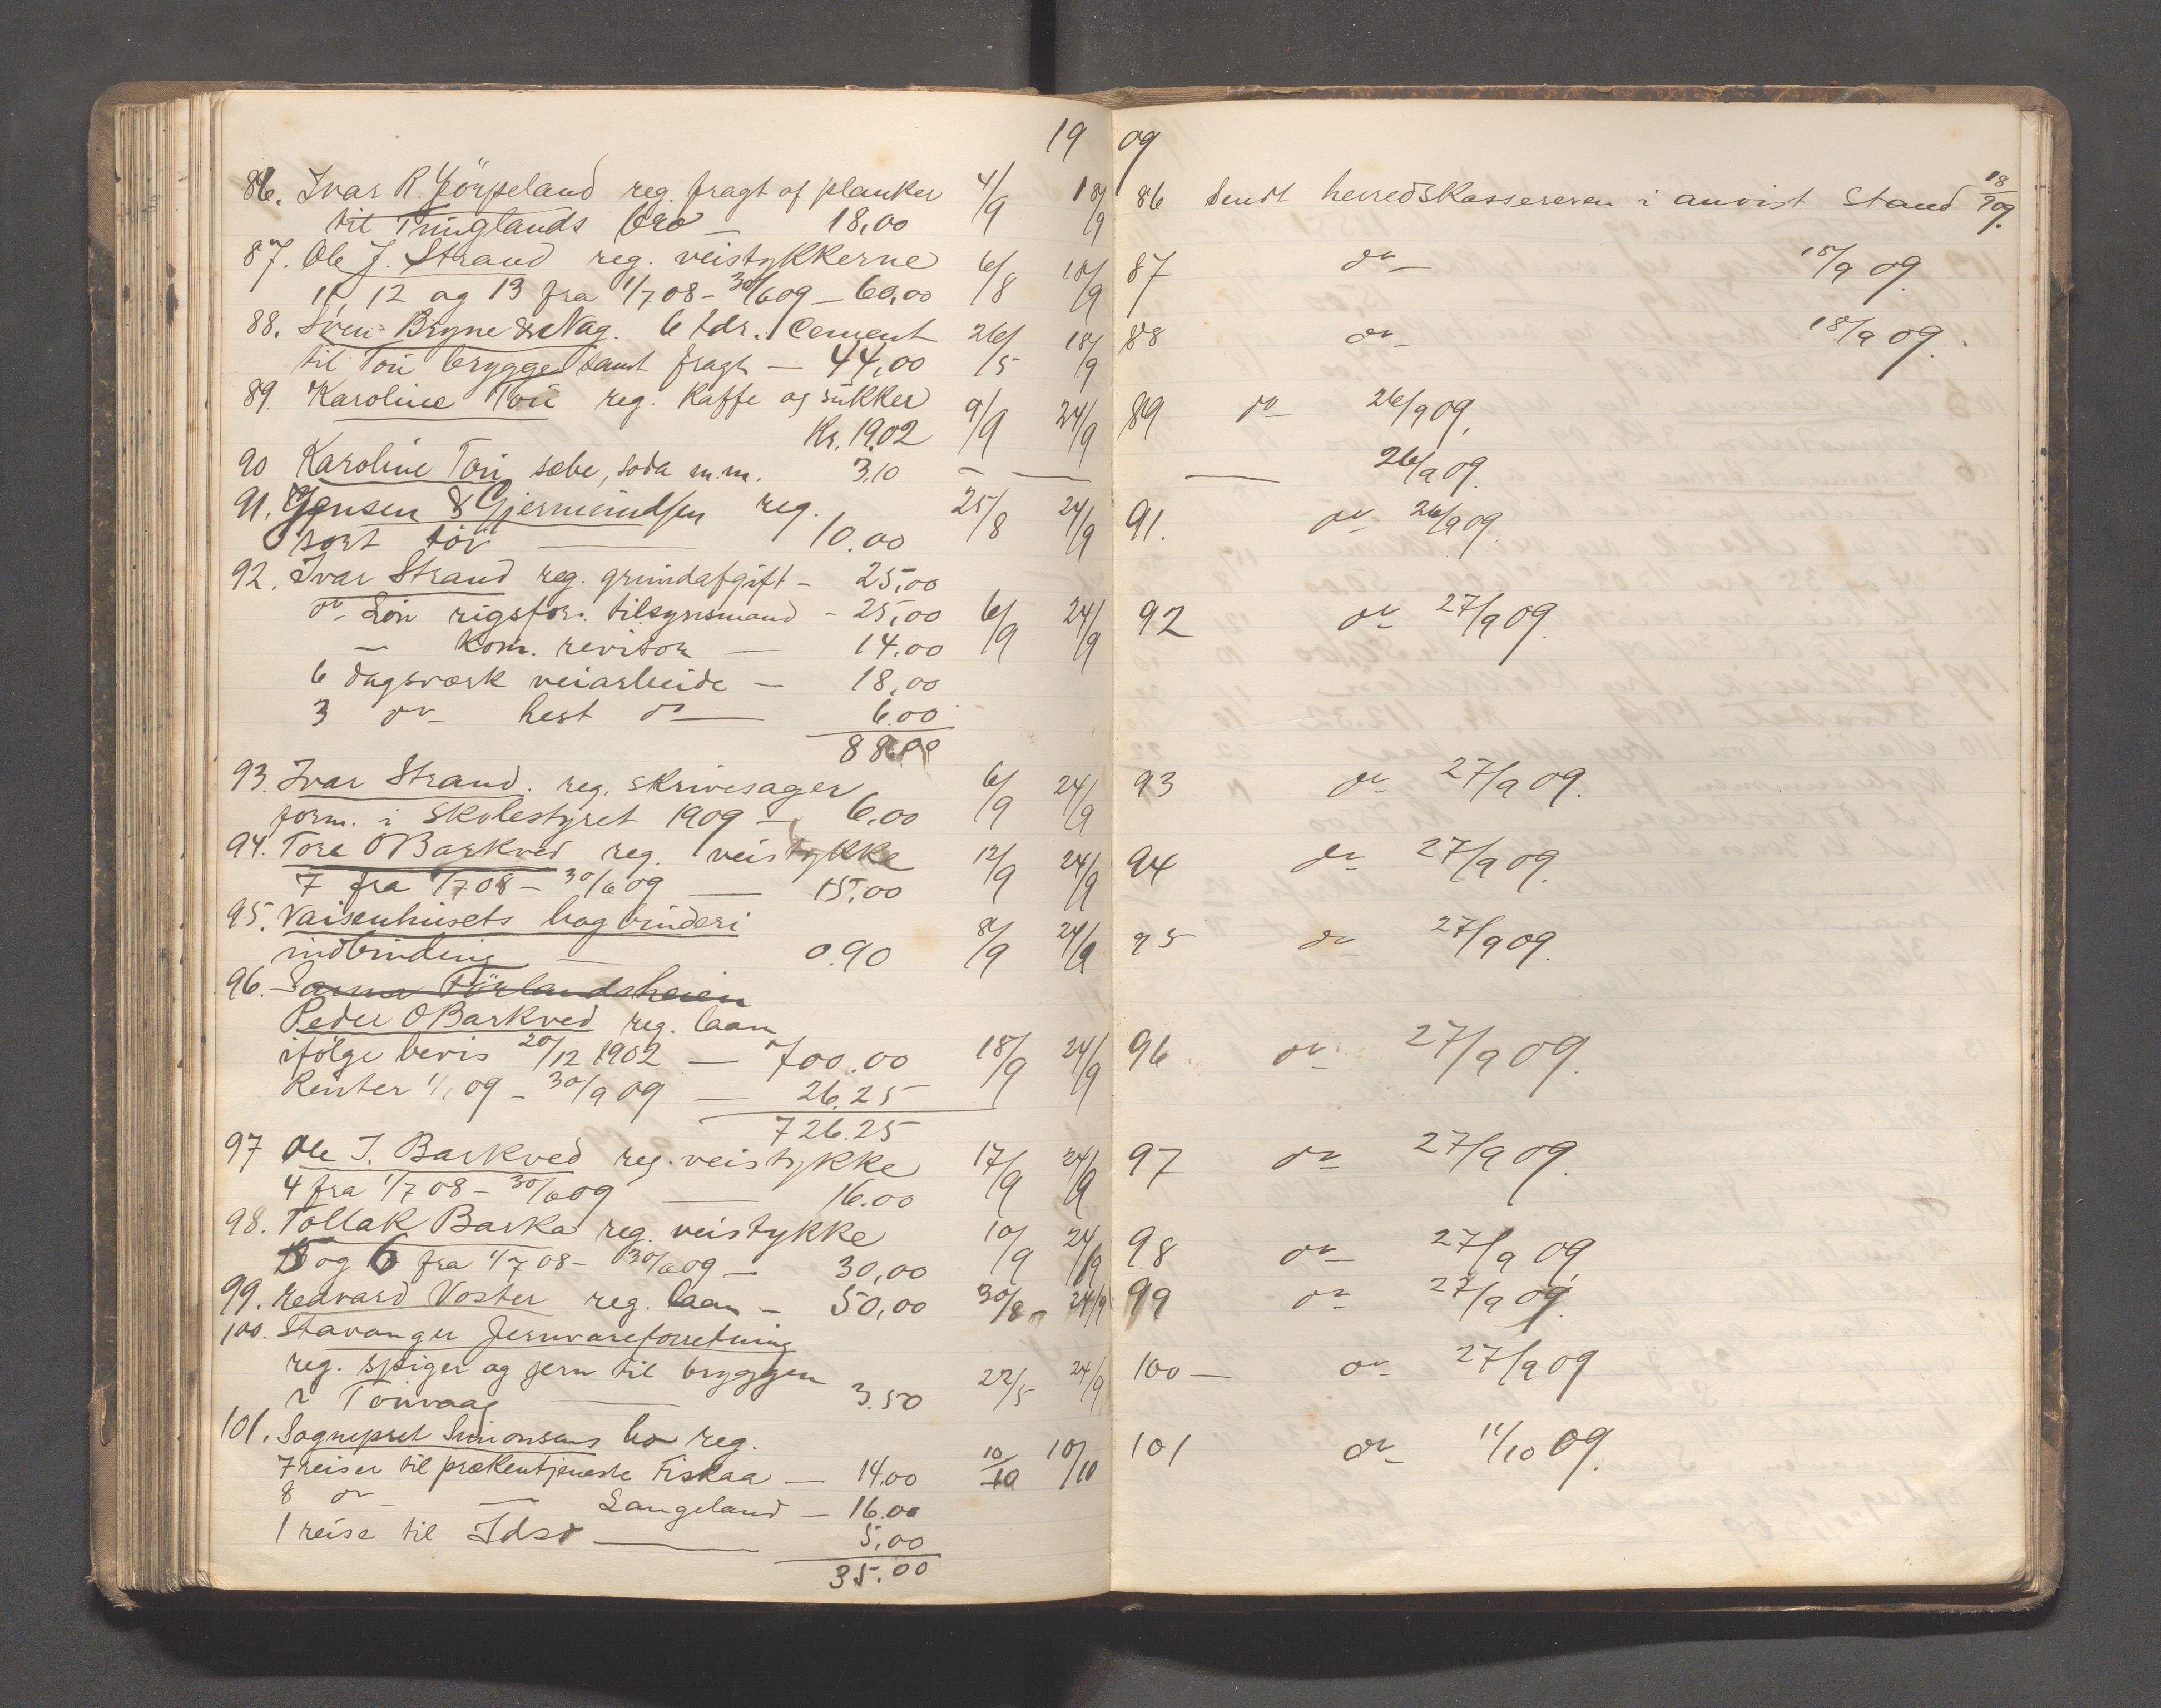 19 09
86. Ivar R. Jörpeland reg. fragt af planker 4/9 18/9
til Tunglands bro — 18,00
87. Ole J. Strand reg. veistykkerne 6/8 18/9
11, 12 og 13 fra 1/7 08 - 30/6 09 — 60,00
88. Sven Bryne & Nag. 6 tdr. Cement 26/5 18/9
til Tou brygge samt fragt — 44,00
89. Karoline Tou reg. kaffe og sukker 9/9 24/9
Kr. 19.02
90 Karoline Tou sæbe, soda m.m. 3.10 — —
91. Jensen & Gjermundsen reg. 25/8 24/9
sort töi — 10.00
92. Ivar Strand reg. grundafgift - 25,00
do Lön rigsfor. tilsynsmand - 25,00 6/9 24/9
— Kom. revisor — 14.00
6 dagsværk veiarbeide — 18,00
3 do hest do — 6.00
88.00
93. Ivar Strand. reg. skrivesager 6/9 24/9
form. i Skolestyret 1909 — 6,00
94. Tore O Barkved reg. veistykke 12/9 24/9
7 fra 1/7 08 - 30/6 09 — 15,00
95. Vaisenhusets bogbinderi
indbinding — 0.90 8/9 24/9
96. Förlandsheien
Peder O Barkved reg. laan
ifölge bevis 20/12 1902 — 700.00 18/9 24/9
Renter 1/1 09 - 30/9 09 — 26.25
726.25
97 Ole J. Barkved reg. veistykke 17/9 24/9
4 fra 1/7 08 - 30/6 09 — 16.00
98. Tollak Barka reg. veistykke 10/9 24/9
5 og 6 fra 1/7 08 - 30/6 09 — 30,00
99. Edvard Voster reg. laan — 50,00 30/8 24/9
100. Stavanger Jernvareforretning
reg. spiger og jern til bryggen
i Touvaag — 3.50 22/5 24/9
101. Sogneprest Simonsens bo reg.
7 reiser til prækentjeneste Fiskaa — 14.00 10/10 10/10
8 do — Langeland — 16.00
1 reise til Idsö — 5,00
35.00
86 Sendt herredskassereren i anvist Stand 18/9 09.
87 do 18/9 09.
88 do 18/9 09.
89 do 26/9 09.
— 26/9 09.
91. do 26/9 09.
92 do 27/9 09.
93 do 27/9 09.
94 do 27/9 09.
95 do 27/9 09.
96 do 27/9 09.
97 do 27/9 09.
98 do 27/9 09
99 do 27/9 09.
100 — do 27/9 09
101 do 11/10 09.